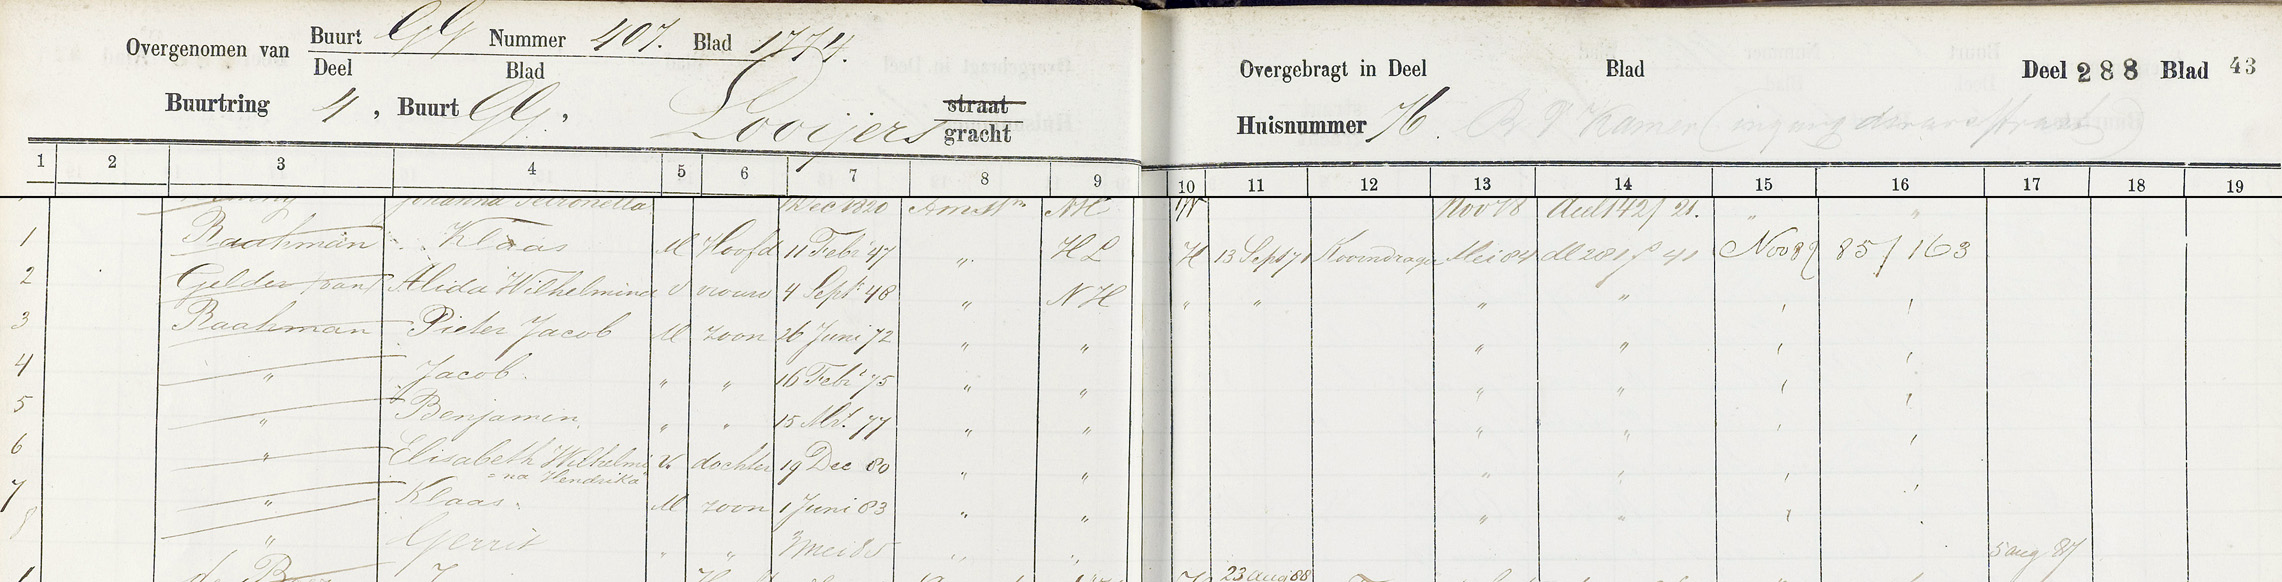 Overgenomen van Buurt GG Nummer 407. Blad 1774.
Deel Blad
Buurtring 4, Buurt GG, Looijers straat gracht
Overgebragt in Deel Blad Deel 288 Blad 43
Huisnummer 76. Kamer
1 2 3 4 5 6 7 8 9 10 11 12 13 14 15 16 17 18 19
Johanna Petronella Dec 1820 Amstm NH W Nov 78 Deel 142/21. " "
1 Raahman Klaas M Hoofd 11 Febr 47 " HL H 13 Sept 71 Koorndrager Mei 84 dl 281 f 41 Nov 89 85/163
2 Gelder (van) Alida Wilhelmina V vrouw 4 Sept 48 " NH " " " " " "
3 Raahman Pieter Jacob M zoon 26 Juni 72 " " " " " "
4 " Jacob. " " 16 Febr 75 " " " " " "
5 " Benjamin. " " 15 Mrt 77 " " " " " "
6 " Elisabeth Wilhelmi=na Hendrika V. dochter 19 Dec 80 " " " " " "
7 " Klaas. M zoon 1 Juni 83 " " " " "
8 " Gerrit " " 3 mei 85 " " 5 aug 87
1 de Boer 23 Aug 88